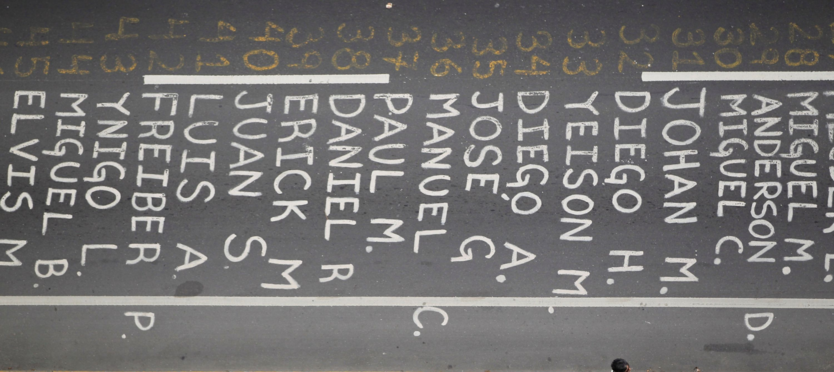 28 MIGUEL M.
29 ANDERSON D.
30 MIGUEL C.
31 JOHAN M.
32 DIEGO H.
33 YEISON M.
34 DIEGO A.
35 JOSÉ G.
36 MANUEL C.
37 PAUL M.
38 DANIEL R
39 ERICK M
40 JUAN S
41 LUIS A.
42 FREIBER P.
43 YNIGO L.
44 MIGUEL B.
45 ELVIS M